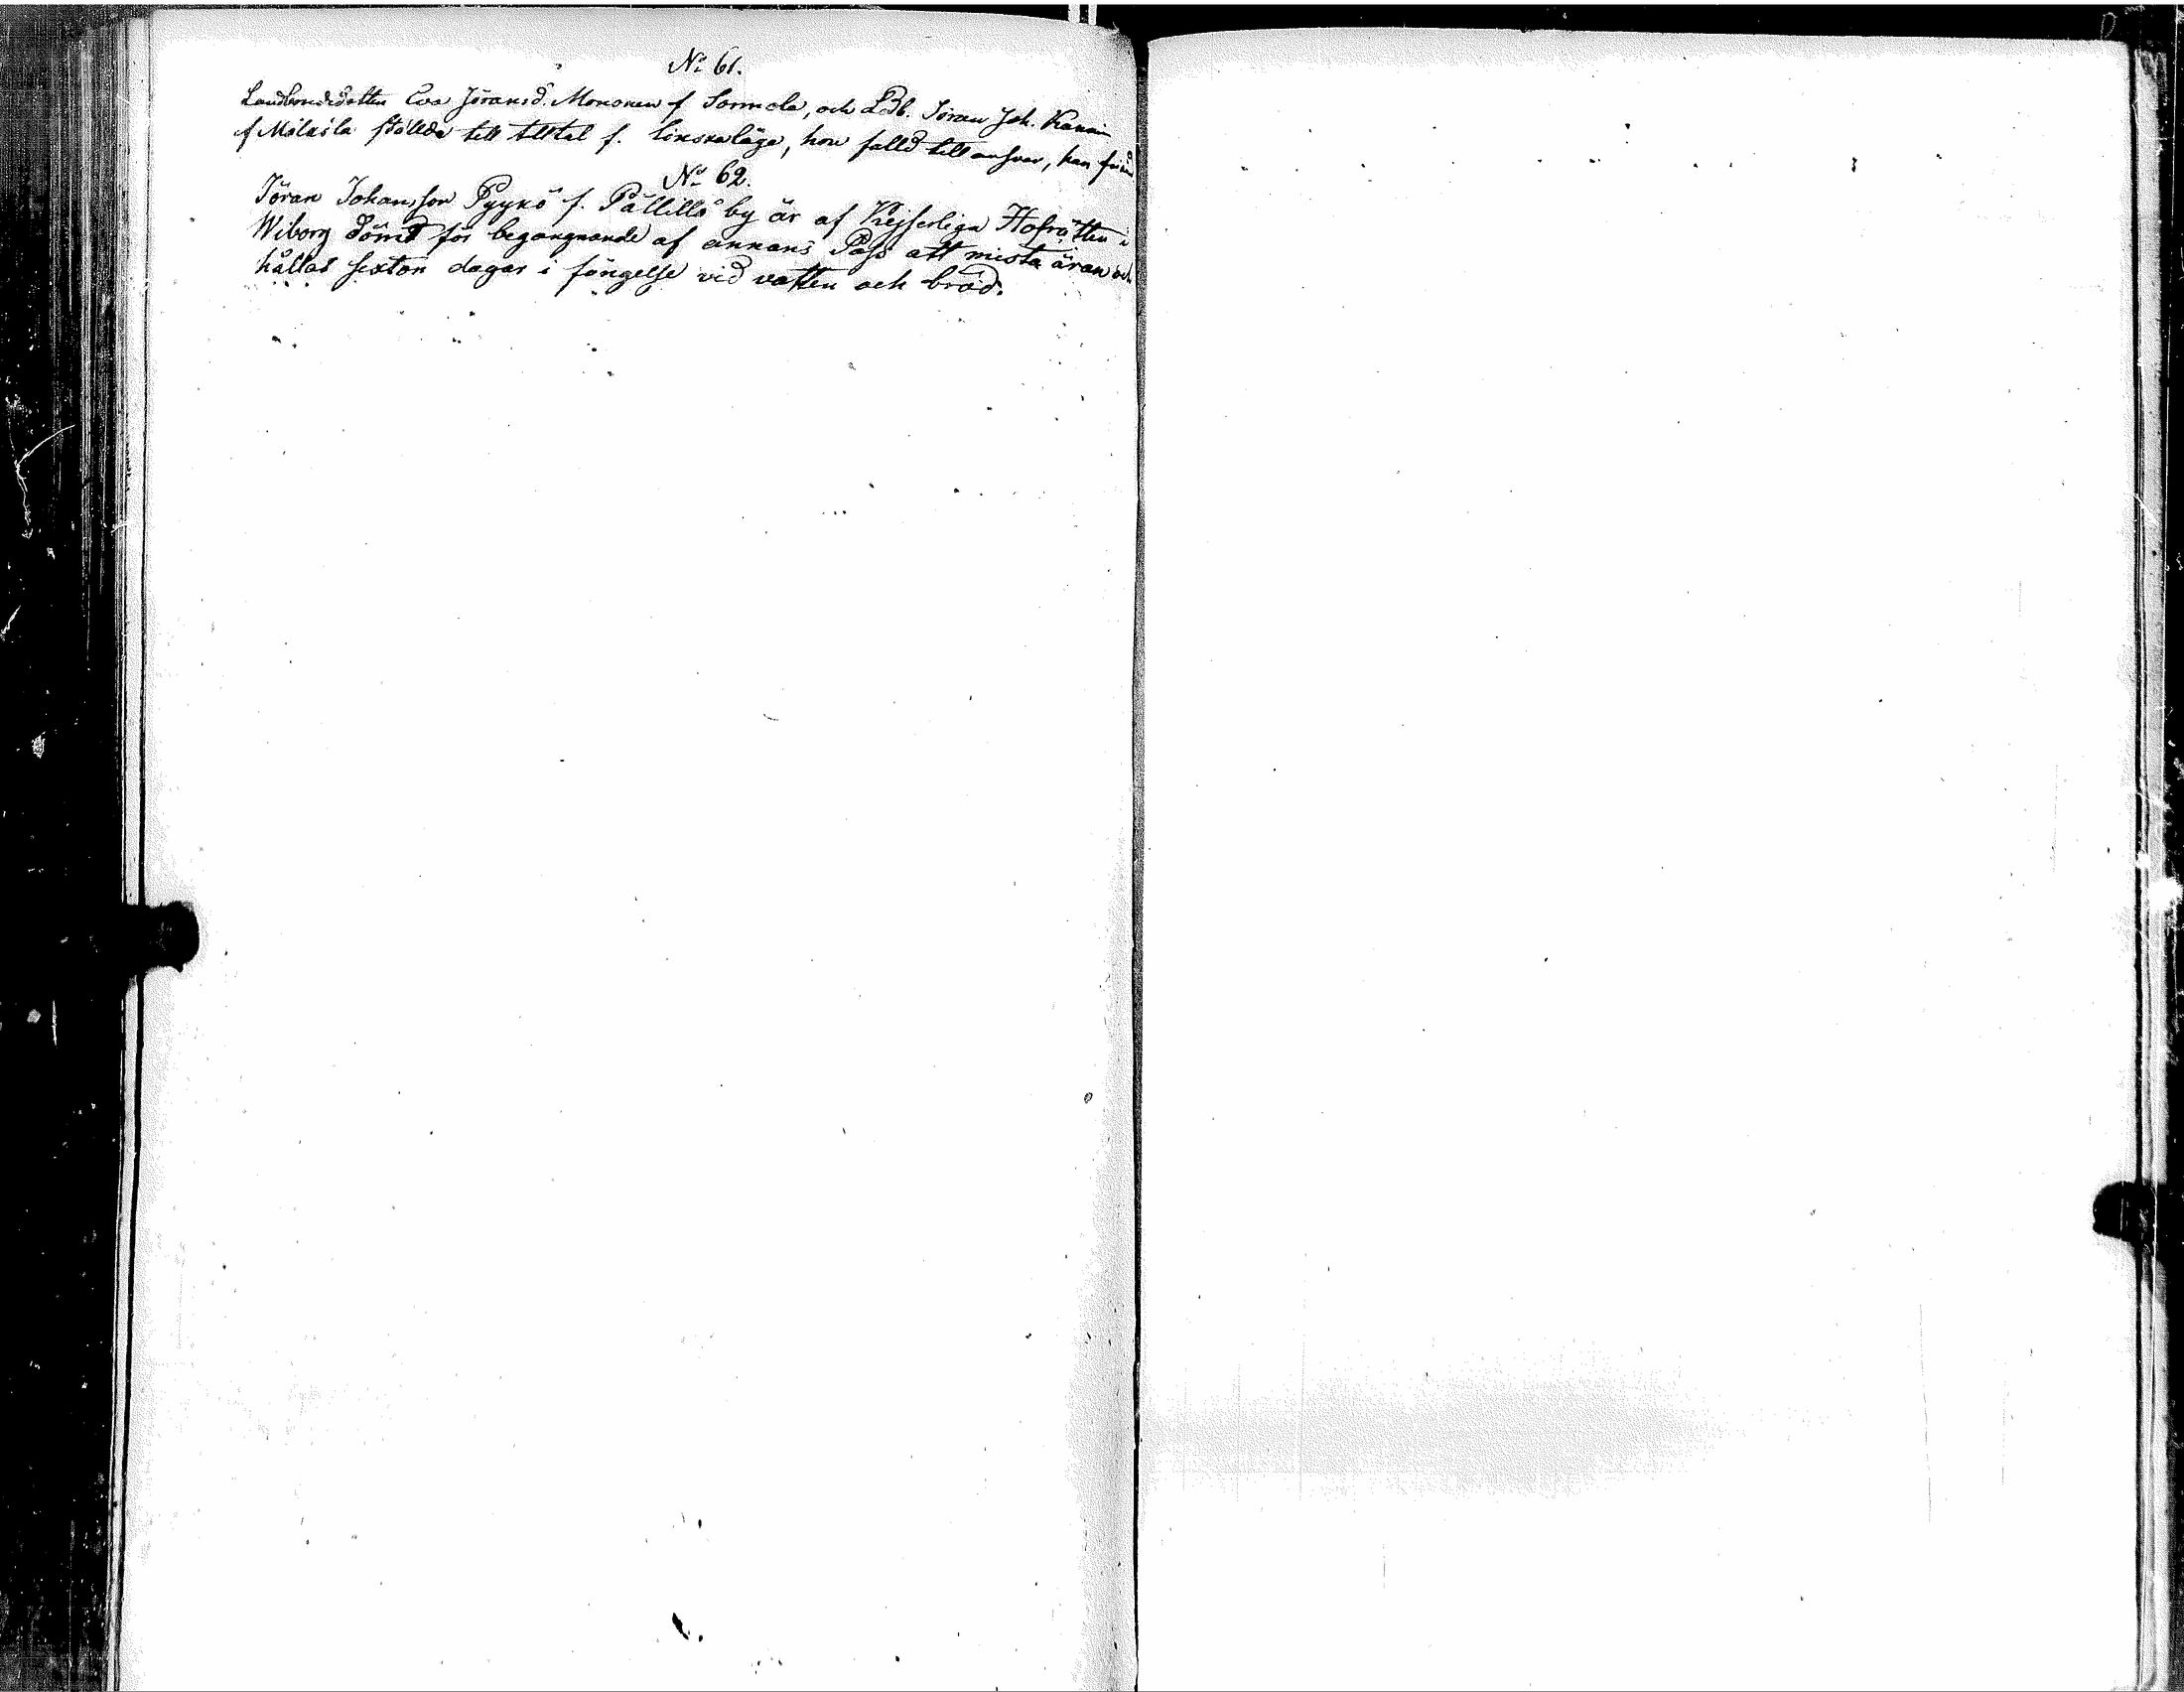 No 61.
Landbondedotten Eva Jöransd. Mononen f. Sormula, och Ldb. Jöran Joh. Kanain
f. Mälkilä ställda till tilltal f. lönskaläge, hon fälld till ansvar, han friänd
No 62.
Jöran Johansson Pyykö f. Pällilä by är af Kejserliga Hofrätten i
Wiborg dömd för begagnande af annans Pass att mista äran och
hållas sexton dagar i fängelse vid vatten och bröd.